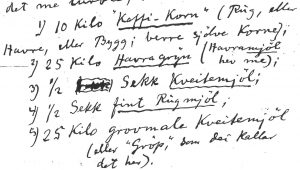 det me
1) 10 Kilo "Kaffi-Korn" (Rug, eller
Havre, eller Bygg; berre sjölve Korne);
2) 25 Kilo Havragryn (Havramjöl
her me);
3) 1/2 Sekk Kveitemjöl;
4) 1/2 Sekk fint Rugmjöl;
5) 25 Kilo grovmale Kveitemjöl
(eller "Gröp", som dei kallar
det her).